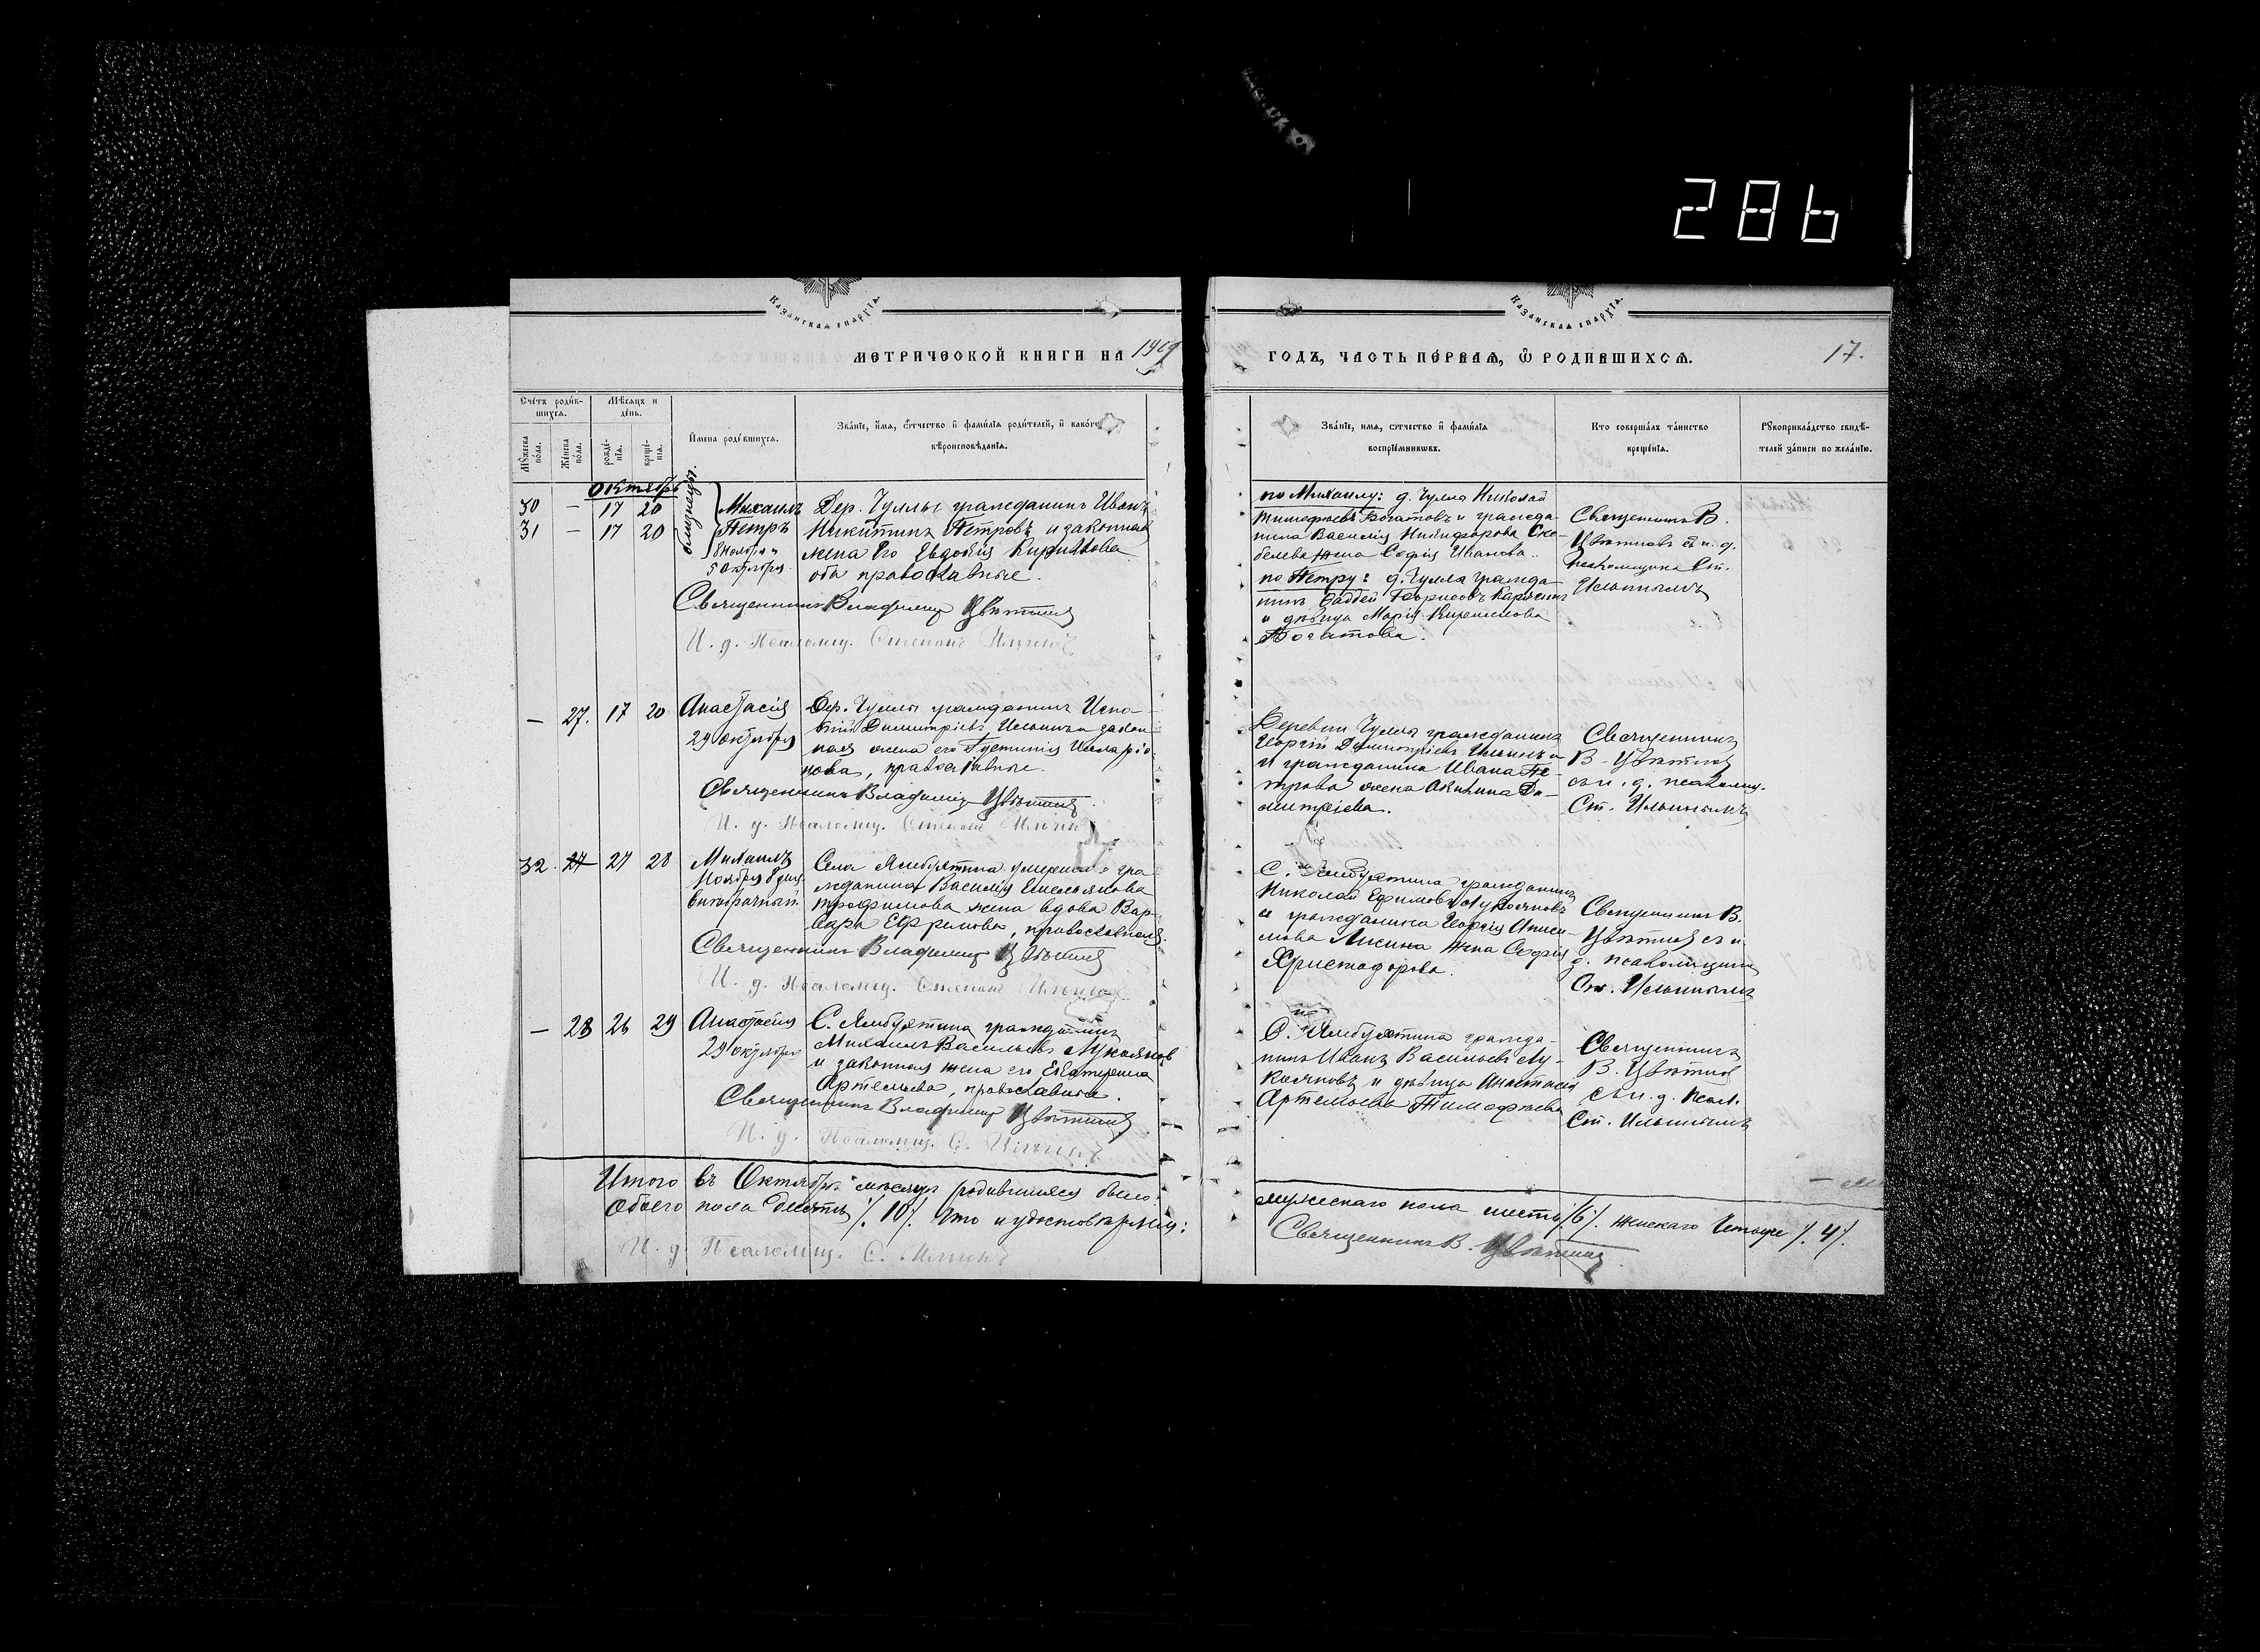 286
Казанская епархія.
Казанская епархія.
МЕТРИЧЕСКОЙ КНИГИ НА 1919
ГОДЪ, ЧАСТЬ ПЕРВАЯ, Ѡ РОДИВШИХСЯ.
17.
Счетъ родившихся.
Мѣсяцъ и день.
Мужеска пола.
Женска пола.
рожденія.
крещенія.
Имена родившихся.
Званіе, имя, ѿчество и фамилія родителей, и какого
вѣроисповѣданія.
Званіе, имя, ѿчество и фамилія
воспріемниковъ.
Кто совершалъ таинство
крещенія.
Рукоприкладство свидѣ-
телей записи по желанію.
Октябрь
близнецы.
30 — 17 20 Михаилъ Дер. Чуллы гражданинъ Иванъ
31 — 17 20 Петръ Никитинъ Петровъ и законная
8 Ноября жена его Евдокія Кириллова
5 Октября оба православные.
Священникъ Владимир Цвѣтков
И. д. Псаломщ. Степанъ Ильинъ
по Михаилу: д. Чулла Николай
Тимофеевъ Богатовъ и гражда-
нина Василія Никифорова Ско-
белева жена Софія Иванова.
по Петру: д. Чулла гражда-
нинъ Фаддей Борисовъ
и дѣвица Марія
Богатова.
Священникъ В.
Цвѣтковъ съ и. д.
псаломщика Ст.
Ильинымъ
— 27. 17 20 Анастасія Дер. Чуллы гражданинъ
29 октября Димитріевъ Ильинъ и закон-
ная жена его Іустинія Иларіо-
нова, православные.
Священникъ Владимир Цвѣтков
И. д. Псаломщ. Степанъ Ильинъ
Деревни Чуллы гражданинъ
Георгій Димитріевъ Ильинъ
и гражданина Ивана Пе-
трова жена Акилина Ди-
митріева.
Священникъ
В. Цвѣтков
съ и. д. псаломщ.
Ст. Ильинымъ
32. 27 28 Михаилъ Села Ямбухтина умершаго гра-
Ноября 8 дня жданина Василія Емельянова
внебрачный Трофимова жена вдова Вар-
вара Ефремова, православная.
Священникъ Владимир Цвѣтков
И. д. Псаломщ. Степанъ Ильинъ
С. Ямбухтина гражданинъ
Николай Ефимовъ Лукояновъ
и гражданина Георгія Аниси-
мова Лисина жена Софія
Христофорова.
Священникъ В.
Цвѣтков съ и.
д. псаломщика
Ст. Ильинымъ
— 28 26 29 Анастасія С. Ямбухтина гражданинъ
29 октября Михаилъ Васильевъ Лукоянов
и законная жена его Екатерина
Артемьева, православные.
Священникъ Владимир Цвѣтков
И. д. Псаломщ. С. Ильинъ
С. Ямбухтина гражда-
нинъ Иванъ Васильевъ Лу-
кояновъ и дѣвица Анастасія
Артемьева Тимофеева
Священникъ
В. Цвѣтков
съ и. д. псал.
Ст. Ильинымъ
Итого въ Октябрѣ мѣсяцѣ родившихся было
обоего пола десять ⁒ 10 ⁒. Что и удостовѣряемъ:
И. д. Псаломщ. С. Ильинъ
мужескаго пола шесть /6/. женскаго Четыре ⁒ 4 ⁒.
Священникъ В. Цвѣтков